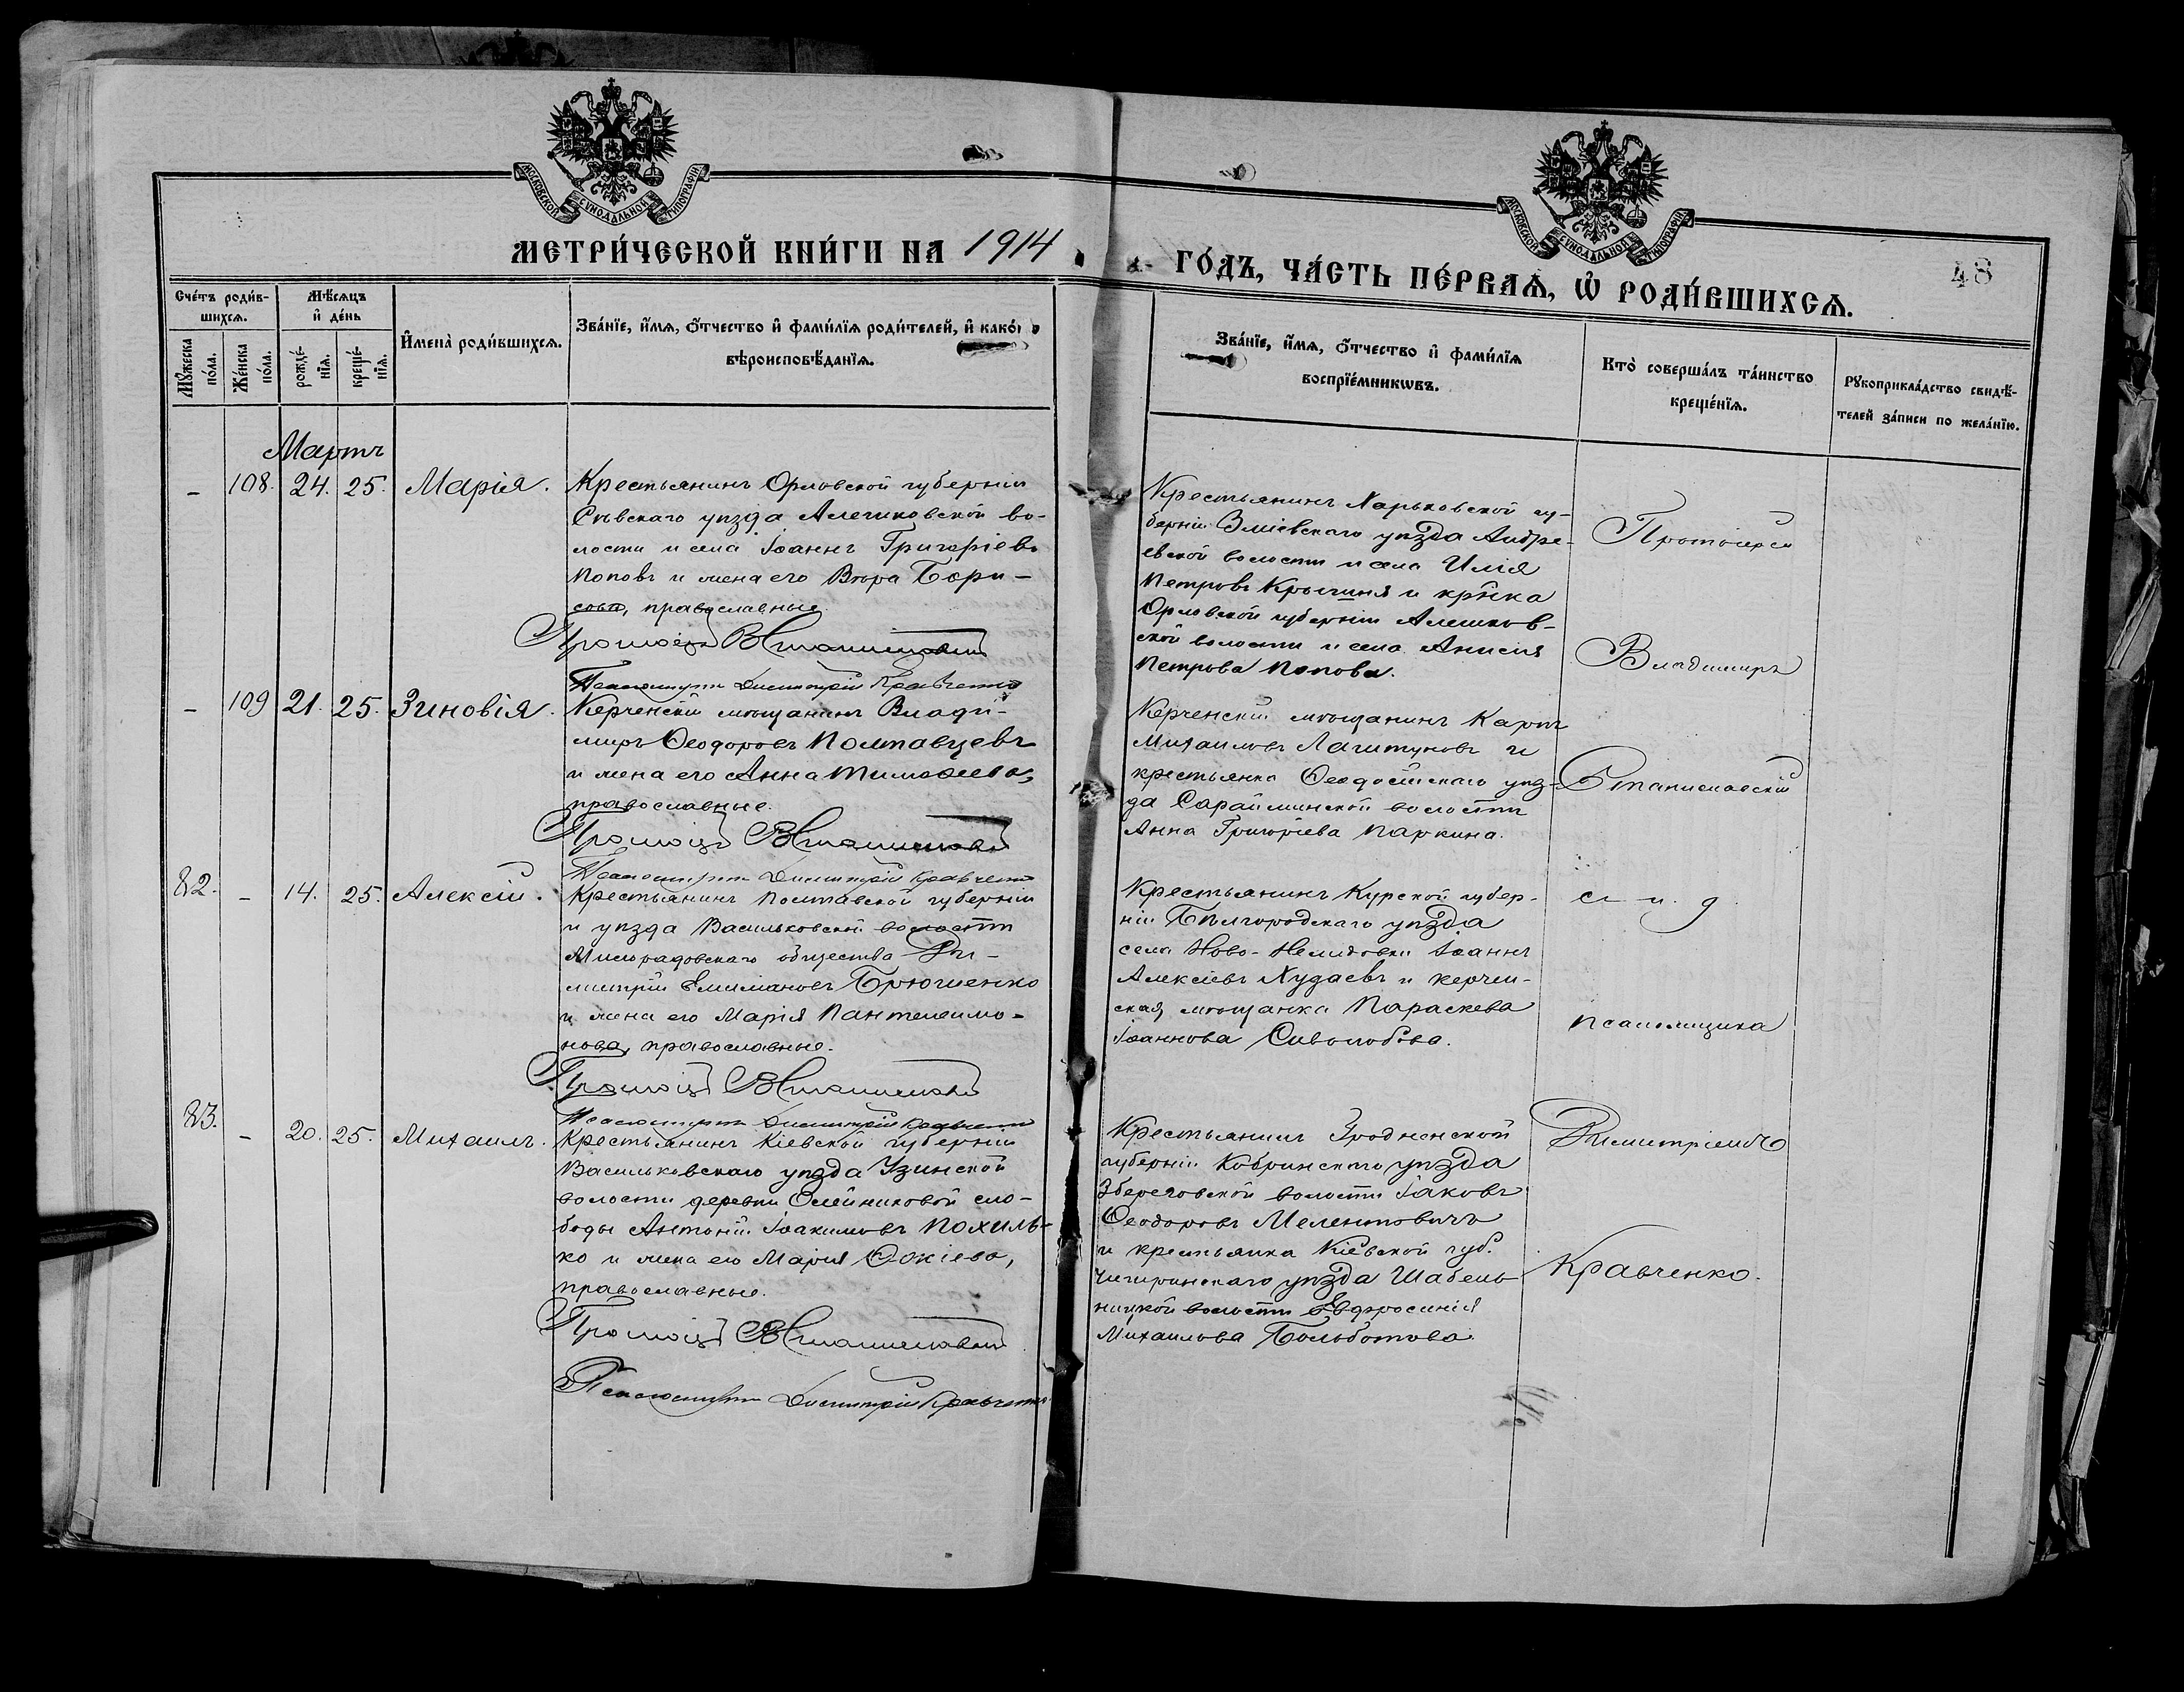 МОСКОВСКОЙ СУНОДАЛЬНОЙ ТИПОГРАФІИ
МОСКОВСКОЙ СУНОДАЛЬНОЙ ТИПОГРАФІИ
МЕТРИ́ЧЕСКОЙ КНИ́ГИ НА 1914
ГО́ДЪ, ЧА́СТЬ ПЕ́РВАѦ, Ѡ҆ РОДИ́ВШИХСѦ.
48
Сче́тъ роди́в-
шихсѧ.
Мѣ́сѧцъ
и҆ де́нь
Мꙋ́жеска
по́ла.
Же́нска
по́ла.
рожде́-
нїѧ.
креще́-
нїѧ.
И҆мена̀ роди́вшихсѧ.
Зва́нїе, и҆́мѧ, о҆́тчество и҆ фами́лїѧ роди́телей, и҆ како́
вѣроисповѣ́данїѧ.
Зва́нїе, и҆́мѧ, о҆́тчество и҆ фами́лїѧ
воспрїе́мникѡвъ.
Кто̀ соверша́лъ та́инство
креще́нїѧ.
Рꙋкоприкла́дство свидѣ́-
телей за́писи по жела́нїю.
Мартъ
- 108. 24. 25. Марія.
Крестьянинъ Орловской губерніи
Сѣвскаго уѣзда Алешковской во-
лости и села Іоаннъ Григоріевъ
Поповъ и жена его Вѣра Бори-
сова, православные.
Протоіер. В Станиславскій
Псаломщикъ Димитрій Кравченко
Крестьянинъ Харьковской гу-
берніи Зміевскаго уѣзда Андре-
евской волости и села Илія
Петровъ и кр-нка
Орловской губерніи Алешков-
ской волости и села Анисія
Петрова Попова.
Протоіерей
Владимиръ
Станиславскій
с и. д
псаломщика
Димитріевъ
Кравченко.
- 109 21. 25. Зиновія.
Керченскій мѣщанинъ Влади-
миръ Ѳеодоровъ Полтавцевъ
и жена его Анна Тимоѳеева,
православные.
Протоіер. В Станиславскій
Псаломщикъ Димитрій Кравченко
Керченскій мѣщанинъ Карпъ
Михаиловъ и
крестьянка Ѳеодосійскаго уѣз-
да Сарайминской волости
Анна Григоріева Паркина.
82. - 14. 25. Алексій.
Крестьянинъ Полтавской губерніи
и уѣзда Васильковской волости
Милорадовскаго общества Ди-
митрій Емиліановъ Брюшенко
и жена его Марія Пантелеимо-
нова, православные.
Протоіер. В Станиславскій
Псаломщикъ Димитрій Кравченко
Крестьянинъ Курской губер-
ніи Бѣлгородскаго уѣзда
села Ново-Нелидовки Іоаннъ
Алексіевъ Худаевъ и керчен-
ская мѣщанка Параскева
Іоаннова Сиволобова.
83. - 20. 25. Михаилъ.
Крестьянинъ Кіевской губерніи
Васильковскаго уѣзда Узинской
волости деревни Олейниковой сло-
боды Антоній Іоакимовъ Похиль-
ко и жена его Марія Фокіева,
православные.
Протоіер. В Станиславскій
Псаломщикъ Димитрій Кравченко
Крестьянинъ Гродненской
губерніи Кобринскаго уѣзда
Збероговской волости Іаковъ
Ѳеодоровъ Мелентовичъ
и крестьянка Кіевской губ.
Чигиринскаго уѣзда Шабель-
ницкой волости Евфросинія
Михаилова Больботова.